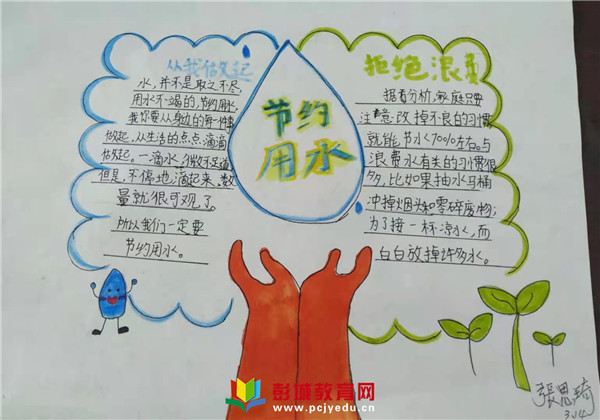 从我做起
水，并不是取之不尽，
用水不竭的，节约用水
我你要从身边的每一件事
做起，从生活的点点滴滴
做起。一滴水，微不足道
但是，不停地滴起来，数
量就很可观了。
所以我们一定要
节约用水。
节约
用水
拒绝浪费
据看分析，家庭只要
注意改掉不良的习惯
就能节水70%左右。与
浪费水有关的习惯很
多，比如果抽水马桶
冲掉烟和零碎废物；
为了接一杯凉水，而
白白放掉许多水。
張思琦
彭城教育网
www.pcjyedu.cn